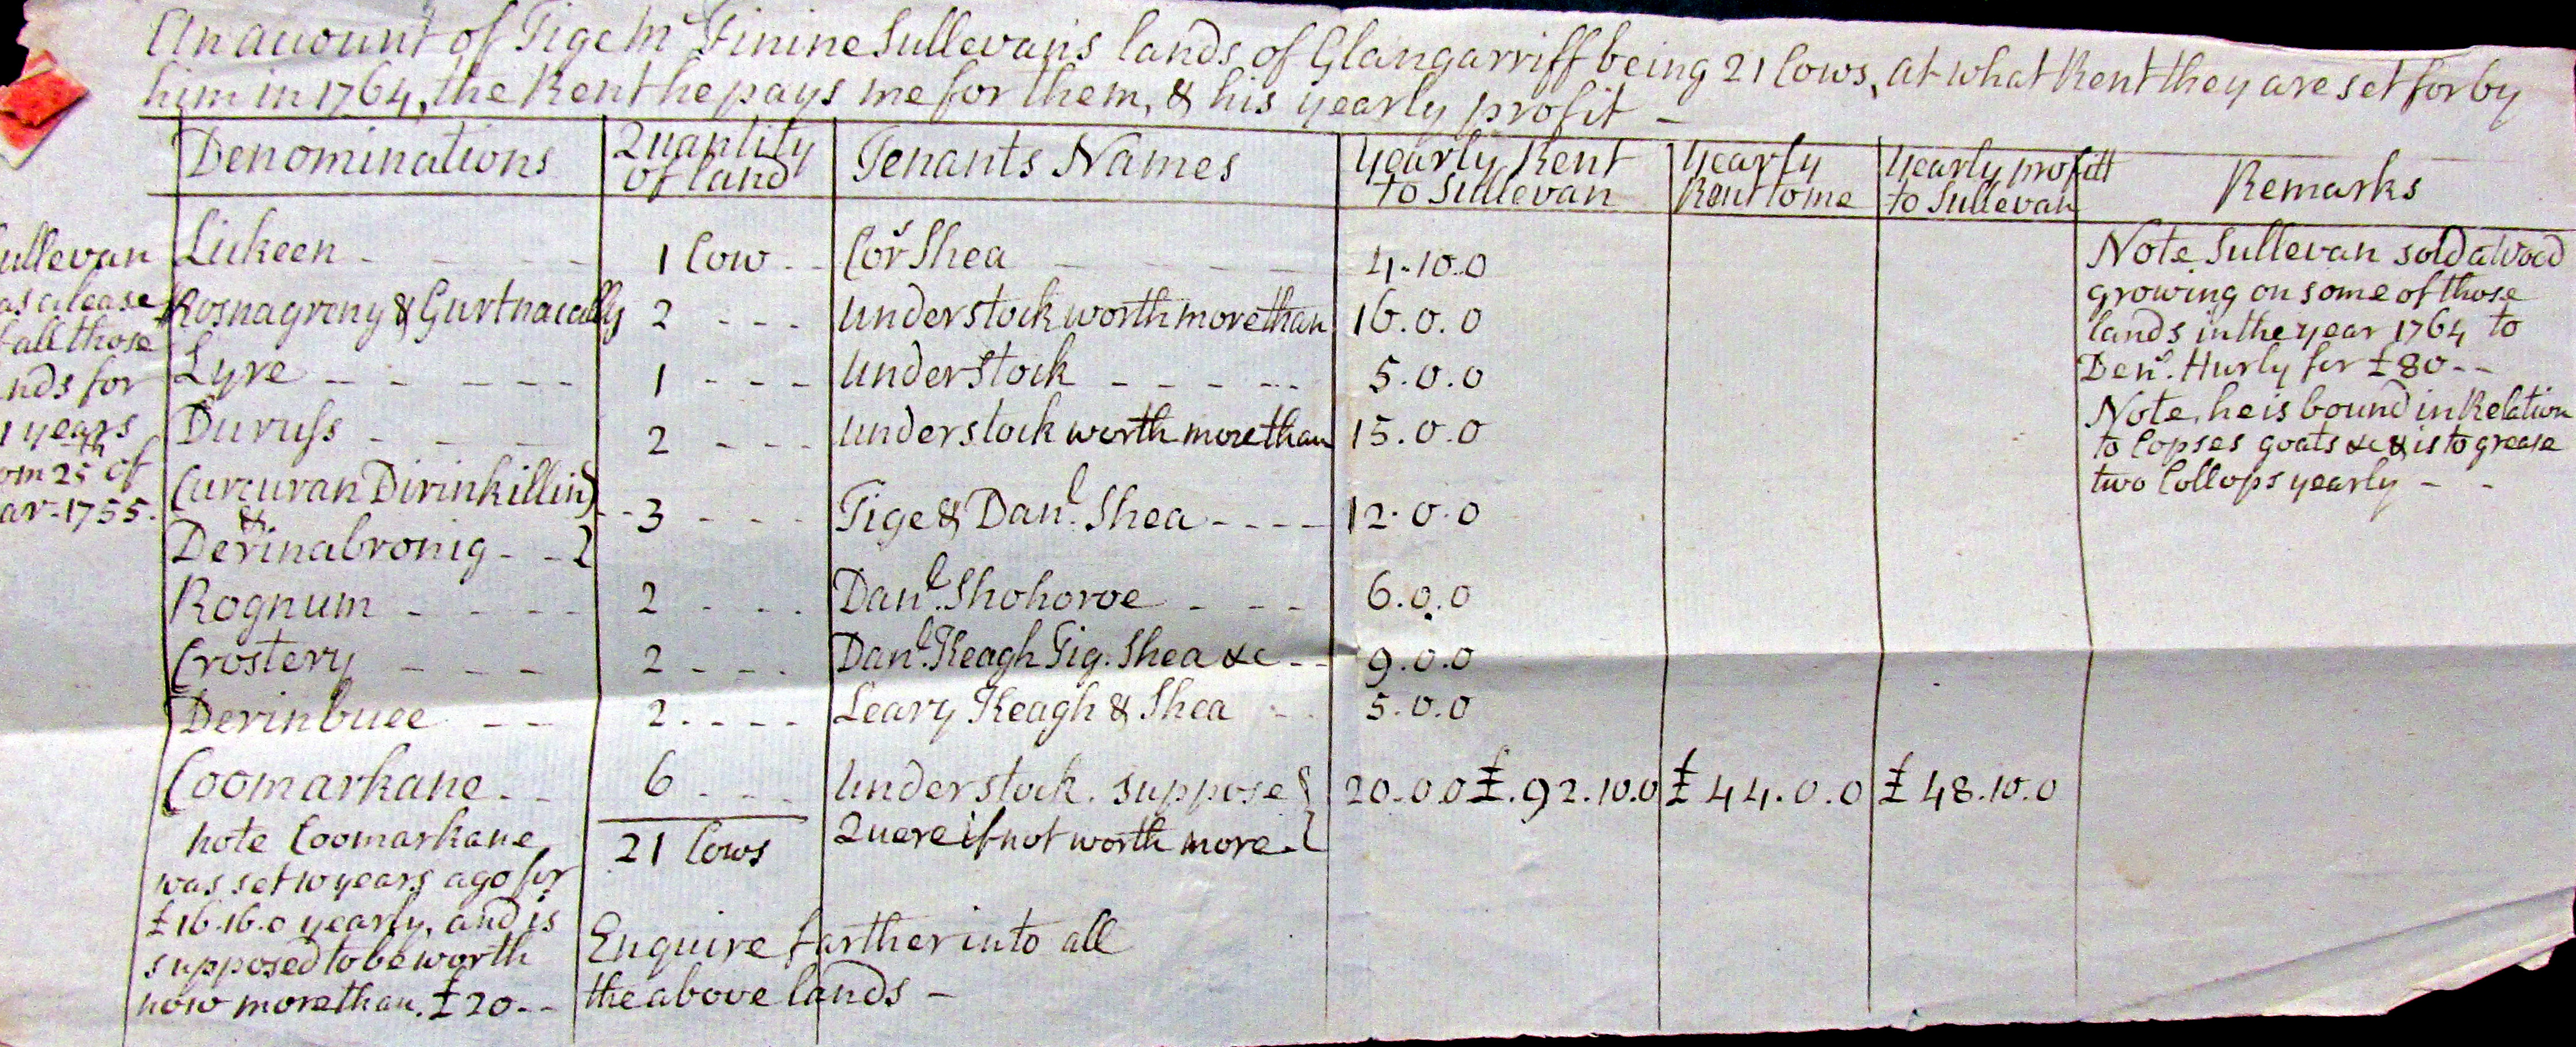 An account of Tige Mc Finine Sullevan's lands of Glangarriff being 21 Cows, at what Rent they are set for by
him in 1764, the Rent he pays me for them, & his yearly profit -
Denominations Quantity of land Tenants Names Yearly Rent to Sullevan Yearly Rent to me Yearly profitt to Sullevan Remarks
ullevan
as a lease
f all those
nds for
1 years
om 25th of
ar. 1755.
Lickeen - - - - - 1 Cow - - Cors Shea - - - - - 4.10.0
Rosnagreny & Gurtnacally 2 - - - Understock worth more than 16.0.0
Lyre - - - - - - 1 - - - Understock - - - - - 5.0.0
Duruss - - - - 2 - - - Understock worth more than 15.0.0
Curcuran Dirinkillin }
&
Derinabronig - - } - - 3 - - - Tige & Danl. Shea - - - - 12.0.0
Rognum - - - - 2 - - - Danl. Shohoroe - - - 6.0.0
Crostery - - - 2 - - - Danl. Keagh Tig. Shea &c - - 9.0.0
Derinbuee - - 2 - - - - Leary Keagh & Shea - - 5.0.0
Coomarkane - - 6 - - - Understock. suppose } 20.0.0 £.92.10.0 £44.0.0 £48.10.0
Quere if not worth more. }
21 Cows
note Coomarkane
was set 10 years ago for
£16.16.0 yearly, and is
supposed to be worth
now more than. £20 - -
Enquire farther into all
the above lands -
Note Sullevan sold a Wood
growing on some of those
lands in the year 1764 to
Dens. Hurly for £80 - -
Note, he is bound in Relation
to Copses goats &c & is to grease
two Collops yearly - -